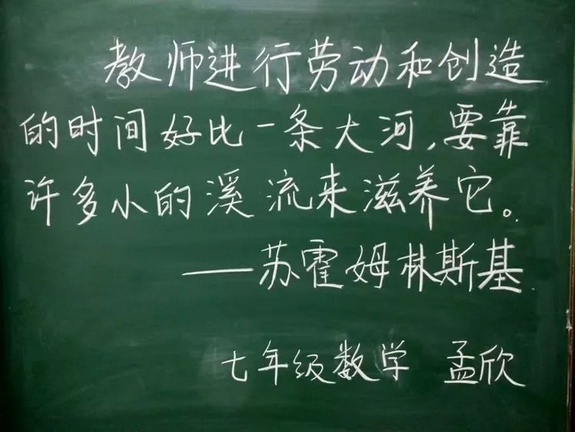 教师进行劳动和创造
的时间好比一条大河,要靠
许多小的溪流来滋养它。
——苏霍姆林斯基
七年级数学 孟欣